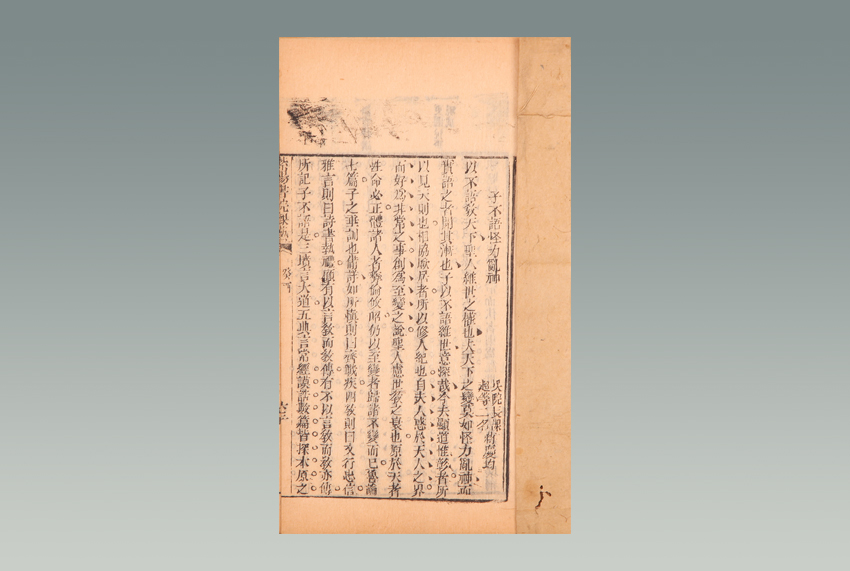 子不語怪力亂神
吳院長課
超等二名
以不語教天下聖人維世之懷也夫天下之變莫如怪力亂神而
實語之者開其漸也子以不語維世意深哉今夫顯道惟彰者所
以見天則也相協厥居者所以修人紀也自夫人惑於天人之界
而好為非常之事創為至變之說聖人慮世教之衰也原於天者
性命必正體諸人者彝倫攸敘仍以至變者歸諸不變而已魯論
七篇子之垂訓也備詳如所慎則曰齊戰疾四教則曰文行忠信
雅言則曰詩書執禮顧有以言教而教傳有不以言教而教亦傳
所記子不語是三墳言大道五典言常經謨誥數篇皆探本原之
書院課